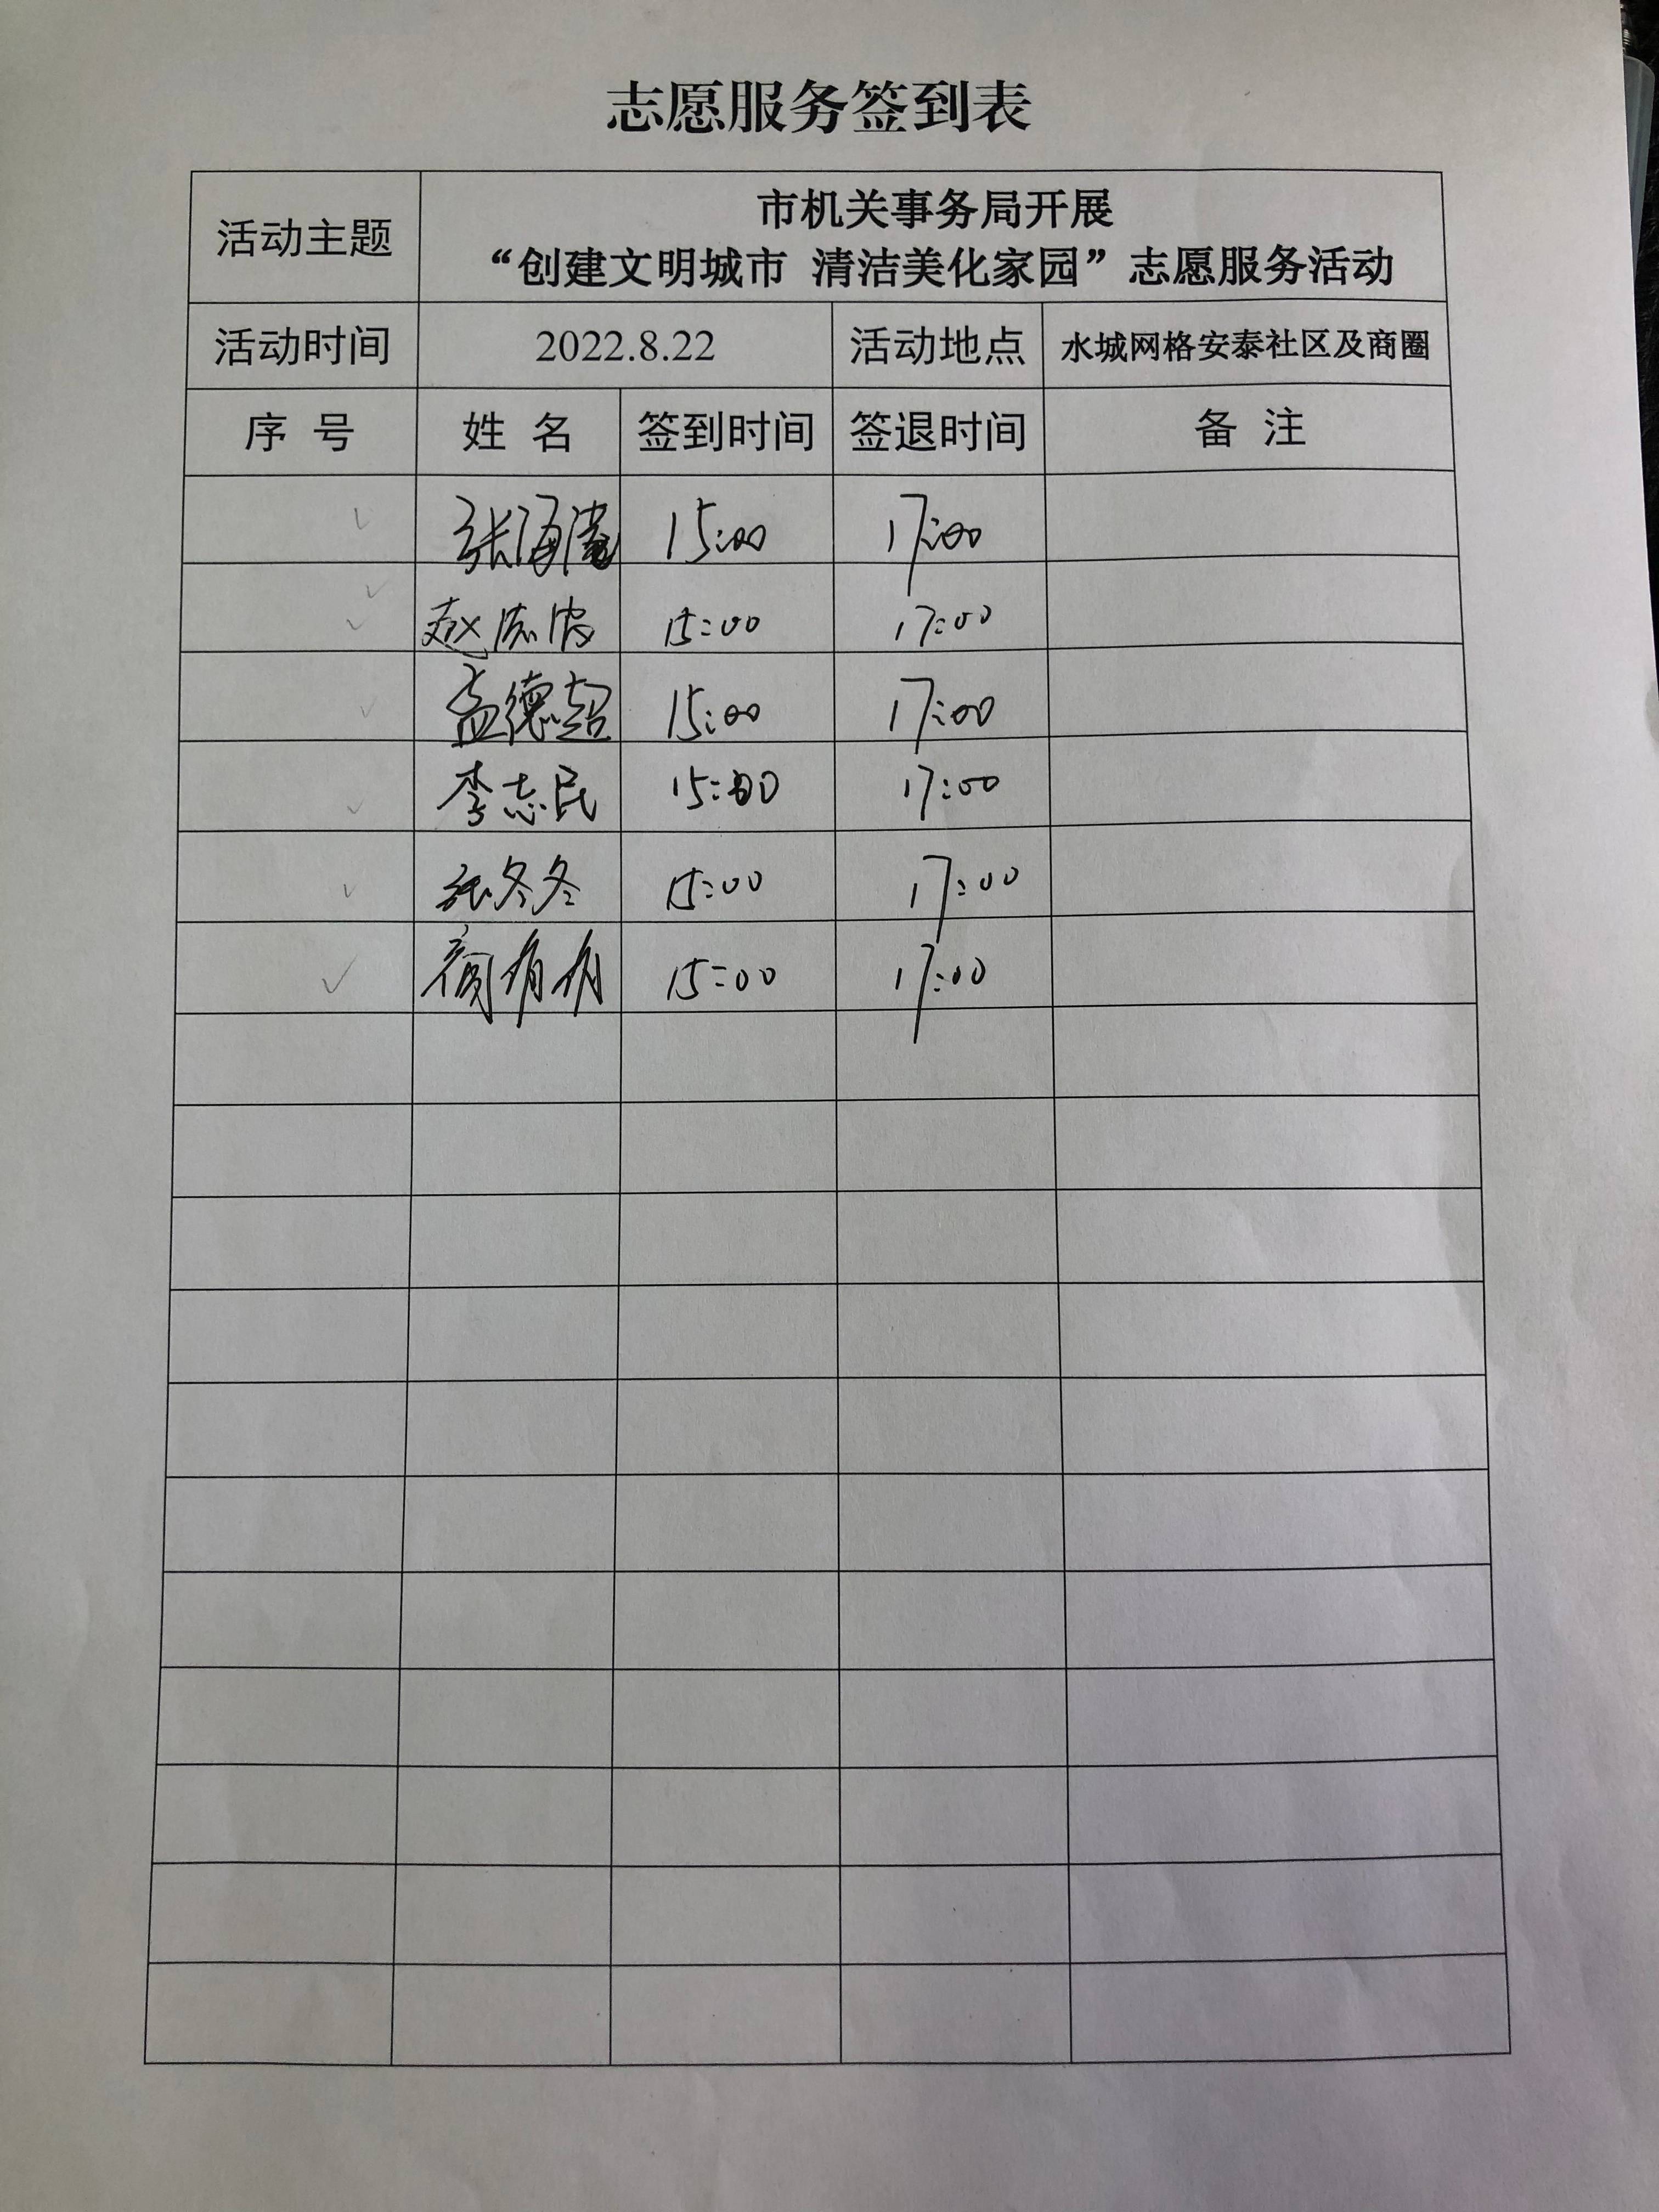 志愿服务签到表
活动主题
市机关事务局开展
“创建文明城市 清洁美化家园”志愿服务活动
活动时间 2022.8.22 活动地点 水城网格安泰社区及商圈
序 号 姓 名 签到时间 签退时间 备 注
张海涛 15:00 17:00
15:00 17:00
孟德超 15:00 17:00
李志民 15:00 17:00
张冬冬 15:00 17:00
15:00 17:00